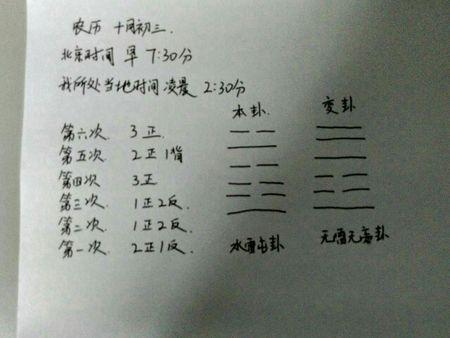 农历 十月初三.
北京时间 早 7:30分
我所处当地时间凌晨 2:30分
本卦. 变卦
第六次 3正
第五次 2正1背
第四次 3正
第三次 1正2反.
第二次 1正2反.
第一次 2正1反.
水雷屯卦 天雷无妄卦